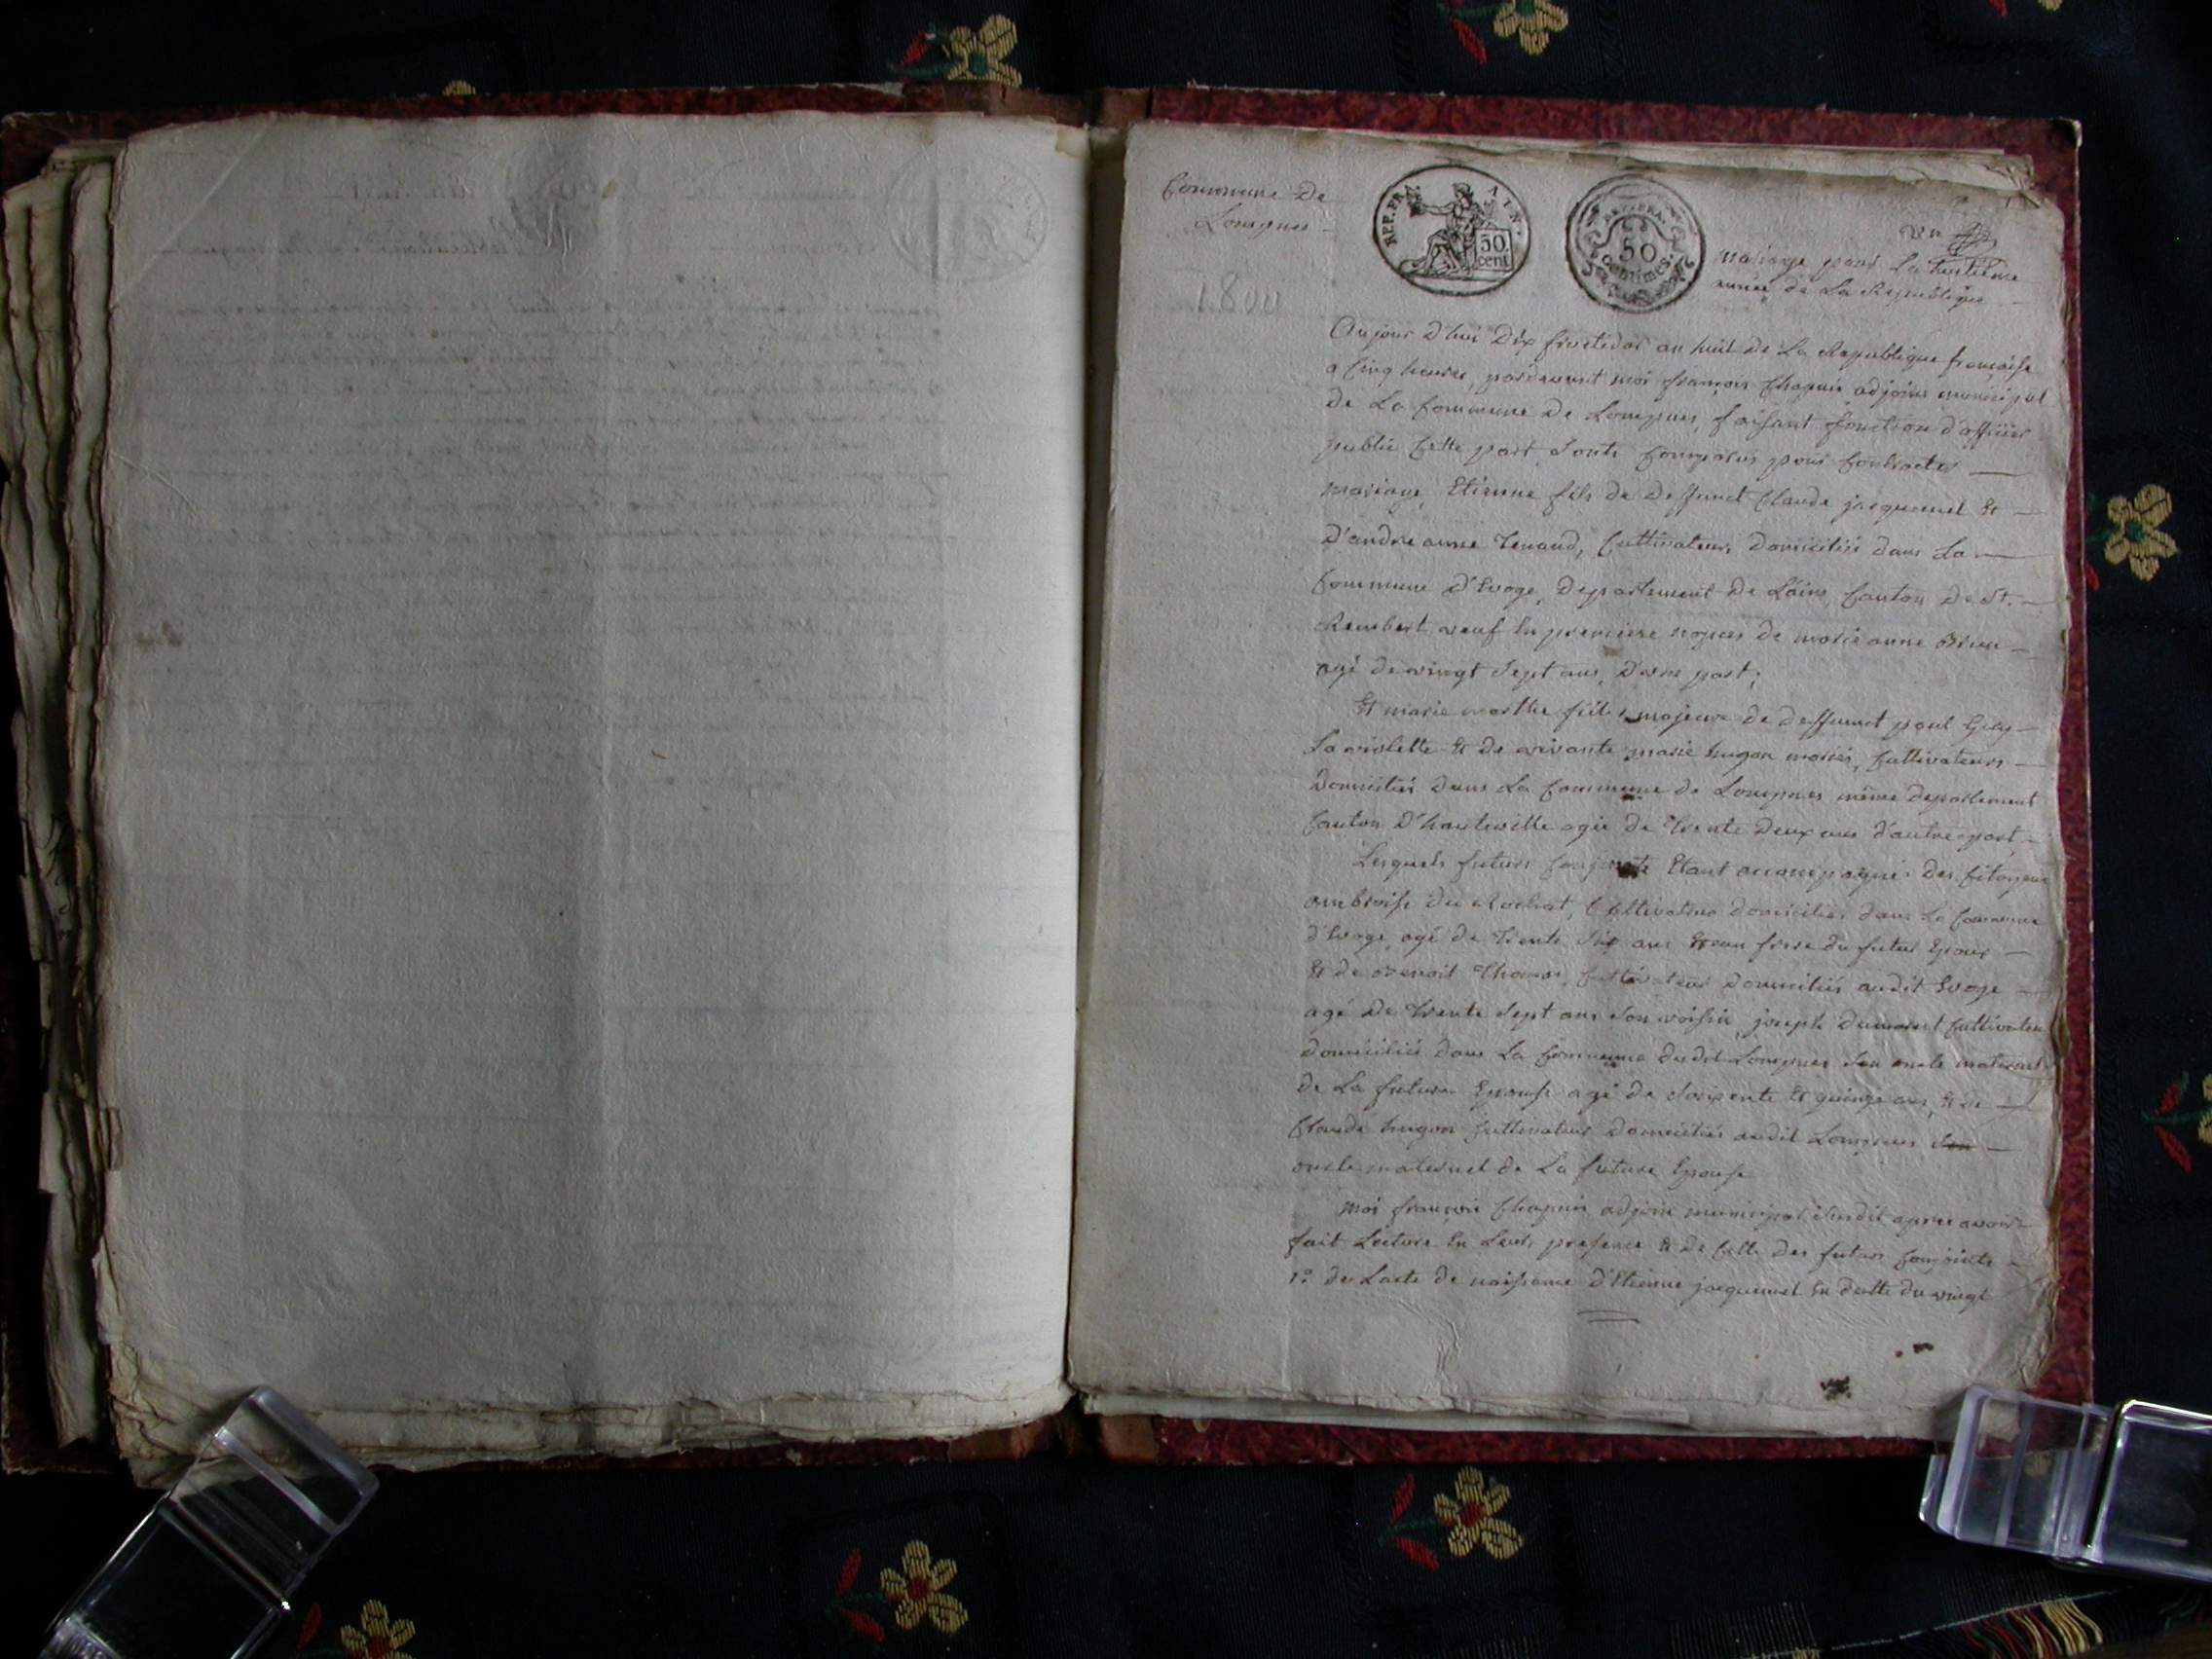 Commune de
Lompnes
1800
REP. FRA. AIN.
50
cent
REP. FRA.
50
centimes.
mariage pour La huitieme
année de La Republique
Aujour d'hui Dix fructidor an huit de La Republique françaises
a Cinq heures, pardevant moi françois Chapuis adjoint municipal
de La Commune de Lompnes, faisant fonction d'officier
public Cette part sonts Comparus pour Contracter
mariage, Etienne fils de deffunct Claude jacquemet Et
D'andrée anne Tenand, Cultivateur, domiciliés dans La
Commune d'Evoge, Departement de L'ain, Canton de St.
Rambert, veuf En premiere nopces de marie anne
agé de vingt Sept ans, D'une part;
Et marie fille majeure de deffunct paul
La violette Et de vivante marie hugon mariés, Cultivateurs
domiciliés dans La Commune de Lompnes même departement
Canton D'hauteville agée de Trente deux ans d'autre part
Lesquels futurs Conjoints Etant accompagné des Citoyens
ambroise du Rochat, Cultivateur domiciliés dans La Commune
d'Evoge, agé de Trente Six ans frere du futur Epoux
Et de benoit Thomas, Cultivateur domiciliés audit Evoge
agé de Trente Sept ans Son voisin, joseph dumarest Cultivateur
domiciliés dans La Commune dudit Lompnes Son oncle maternel
de La future Epouse agé de Soixente Et quinze ans, Et de
Claude hugon Cultivateur domiciliés audit Lompnes Son
oncle maternel de La future Epouse
Moi françois Chapuis adjoint municipal susdit après avoir
fait Lecture En Leurs presence Et de Celle des futurs Conjoints
1° de Lacte de naissance d'Etienne jacquemet En datte du vingt